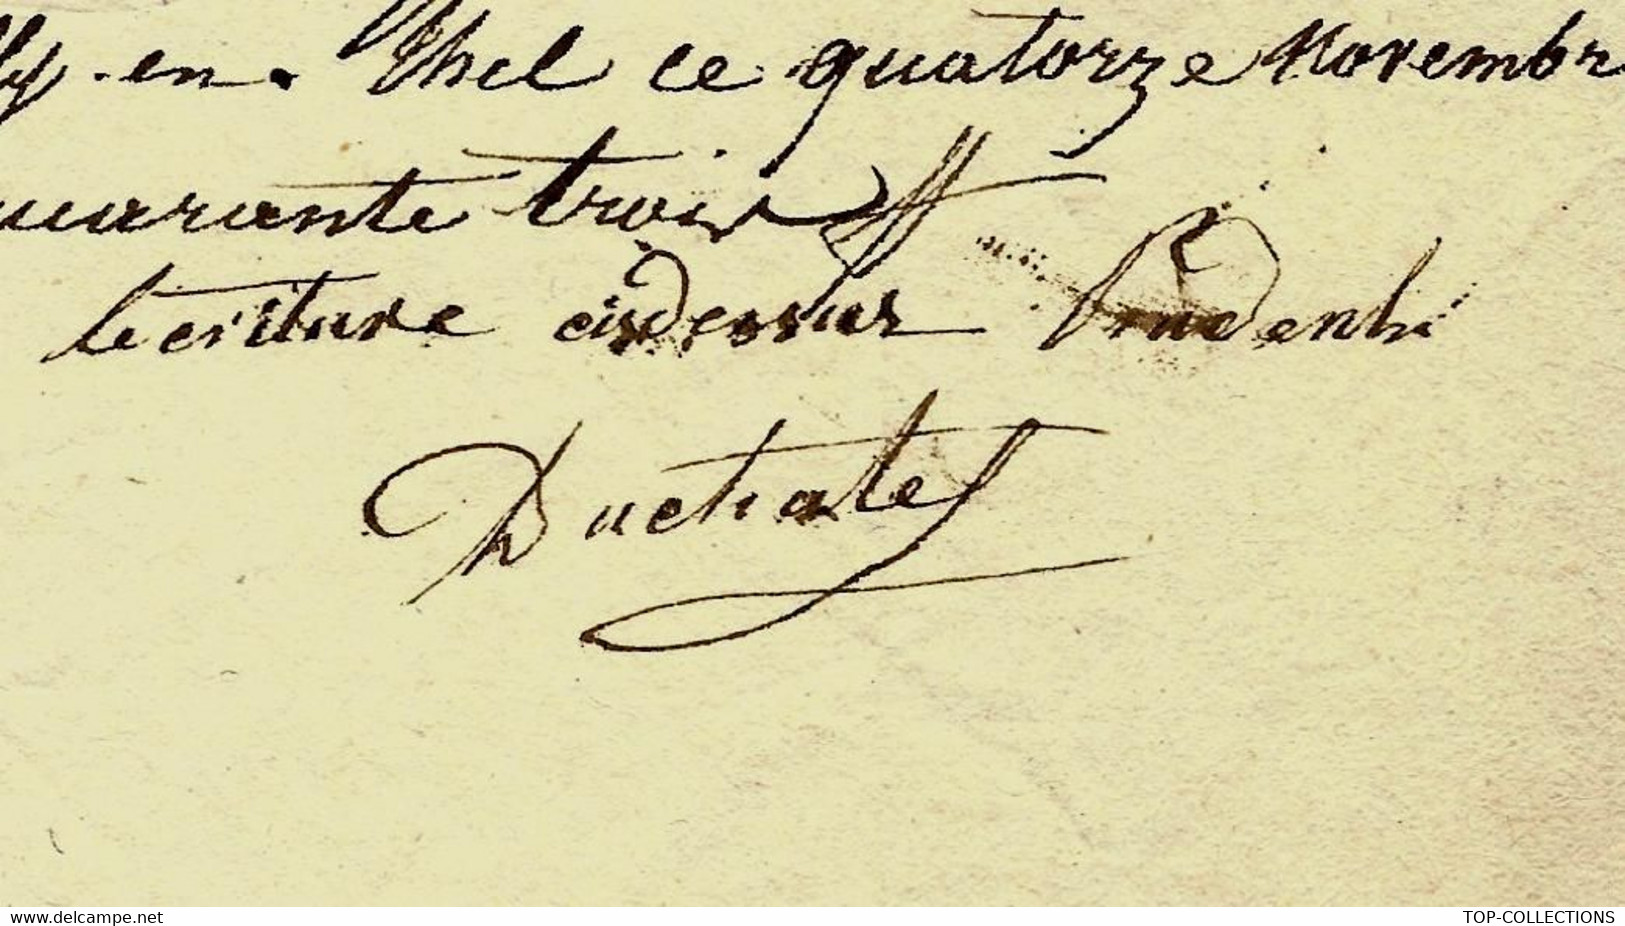 lly. en. Thel ce quatorze Novembr
uarante trois
lecriture cidessus
Duchatel
www.delcampe.net TOP-COLLECTIONS